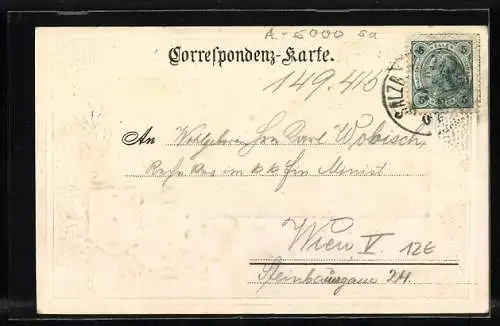 A-5000 Sa
Correspondenz-Karte.
149.416
5 5
SALZB
5 5
An Wohlgeboren Herr Karl Wobisch
im k k Fin Minist
Wien V. 12E
Steinbauergasse 24.